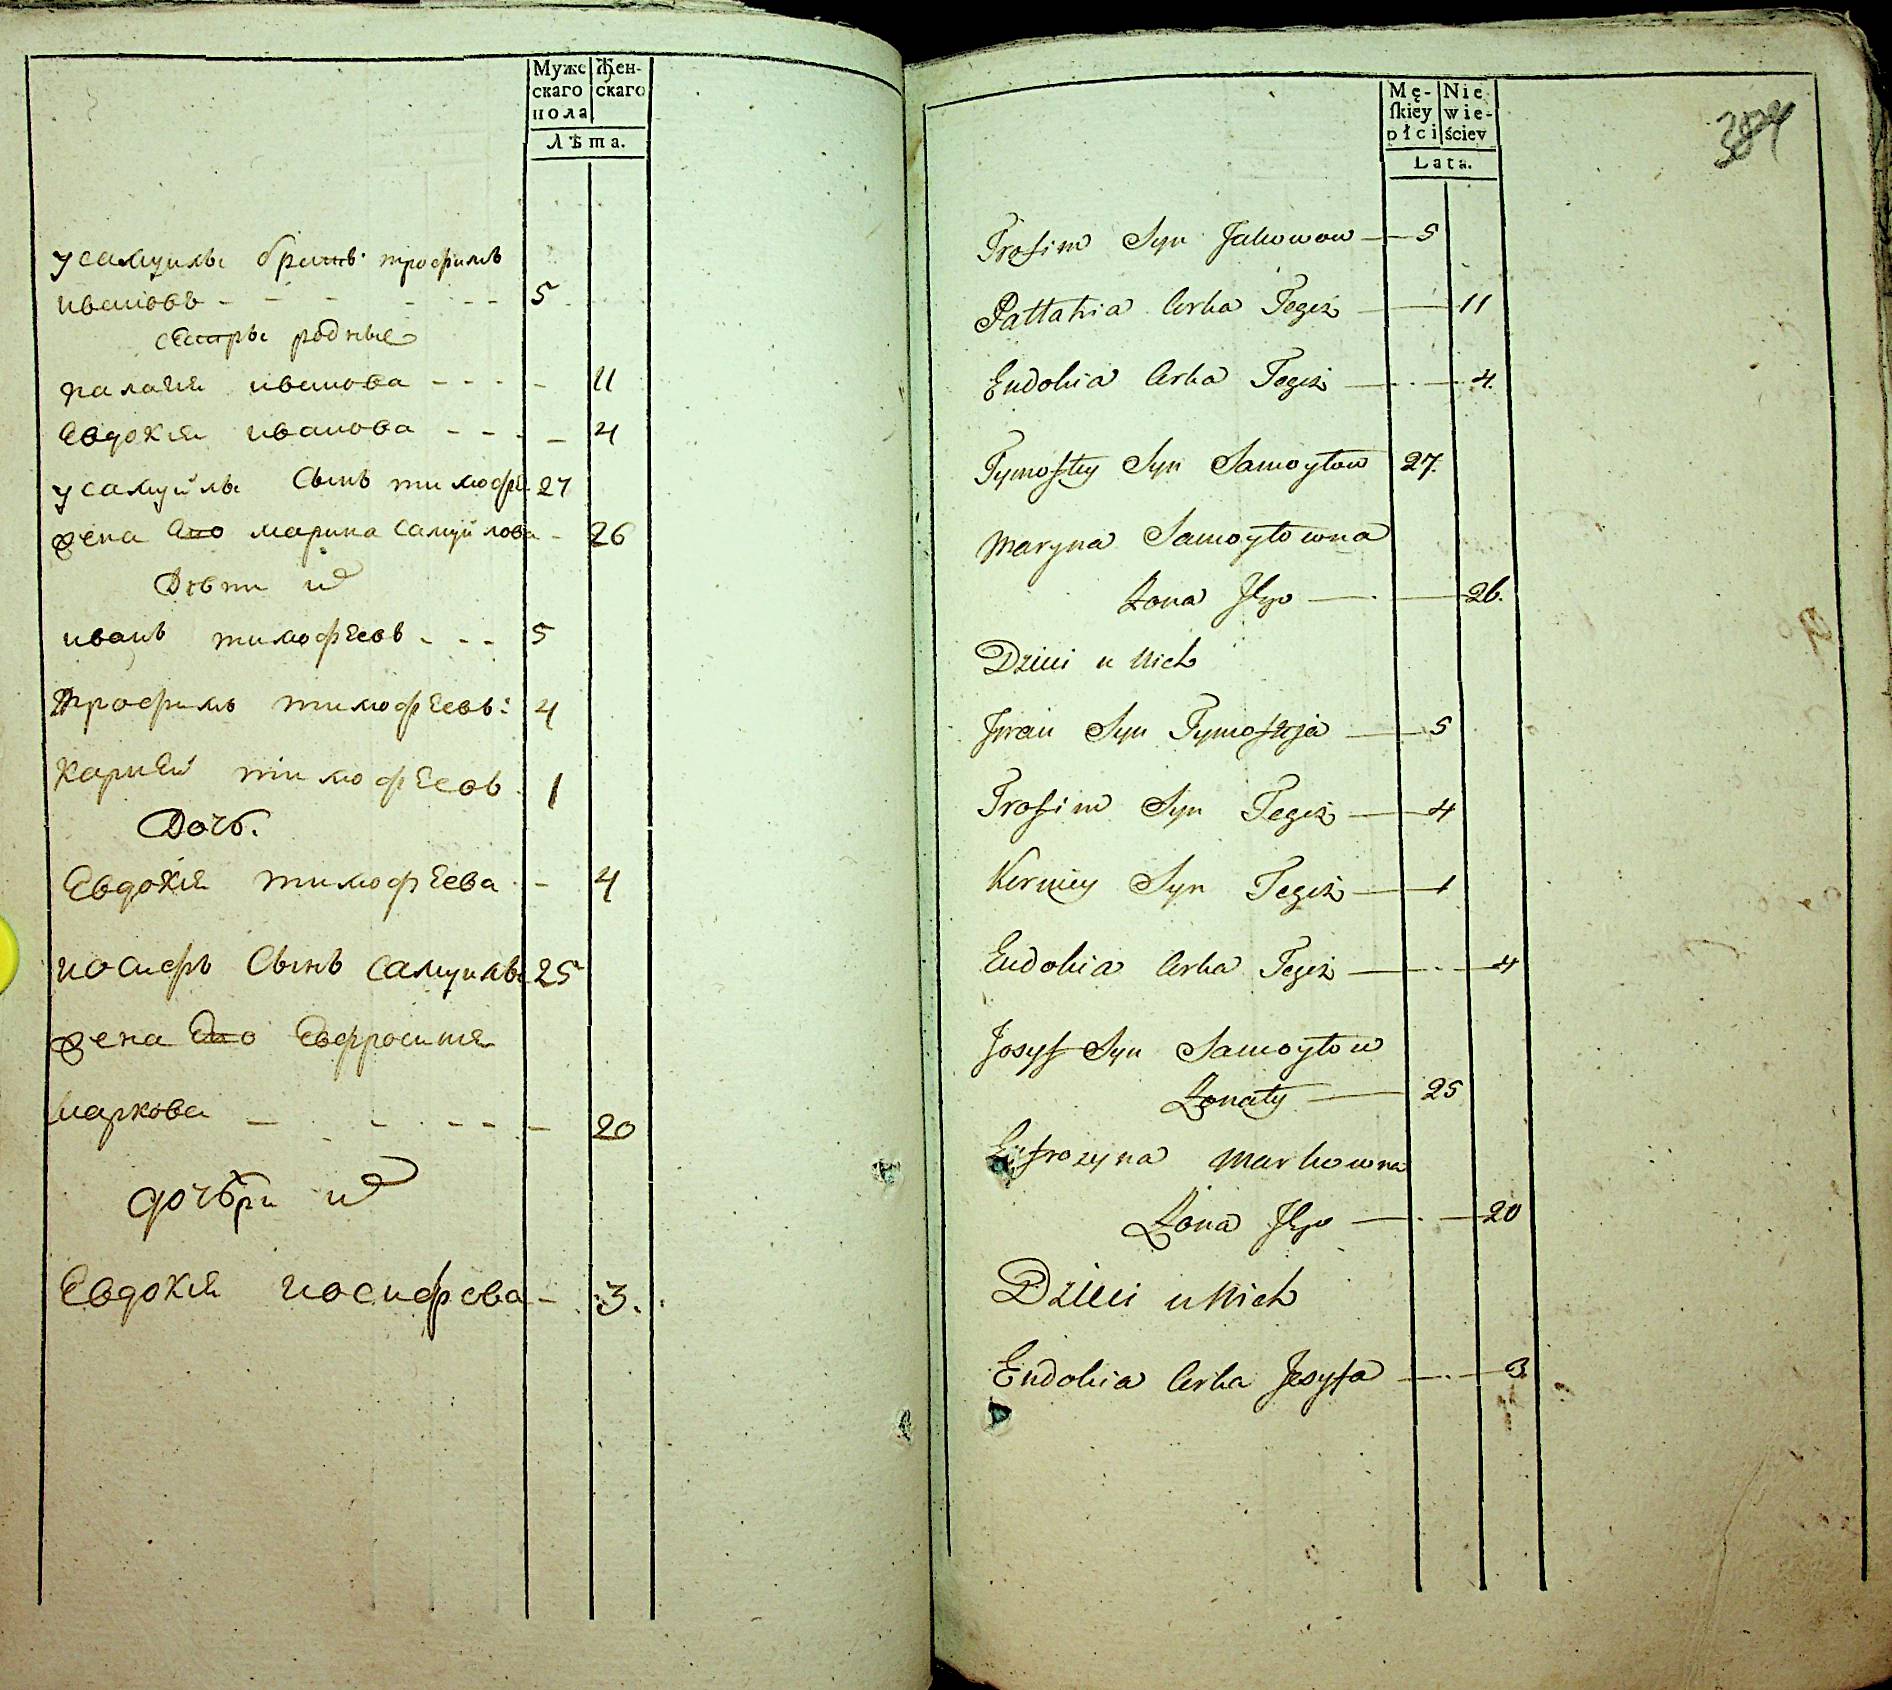 Муже
скаго
пола
Жен-
скаго
Лѣта.
у самуилы братъ трофимъ
ивановъ - - - - - - 5
сестры родные
палагия иванова - - - - 11
Евдокия иванова - - - - 4
у самуйлы Сынъ тимофей 27
жена Его марина Самуйлова - 26
Дѣти их
иванъ тимофеевъ - - - 5
трофимъ тимофеевъ: 4
Карней тимофеевъ 1
Дочь.
Евдокия тимофеева - 4
иосифъ Сынъ Самуилы 25
жена Его Евфросиния
Маркова - - - - - 20
дочери их
Евдокия иосифова - 3.
Mę-
skiey
płci
Nie
wie-
ściey
Lata.
384
Trofim Syn Jakowow 5
Pałłahia Corka Tegoż 11
Eudokia Corka Tegoż 4
Tymofiey Syn Samoyłow 27.
Maryna Samoyłowna
Żona Jego 26.
Dzieci u Nich
Jwan Syn Tymofieja 5
Trofim Syn Tegoż 4
Korniey Syn Tegoż 1
Eudokia Corka Tegoż 4
Josyf Syn Samoyłow
Żonaty 25
Eufrozyna Markowna
Żona Jego 20
Dzieci u Nich
Eudokia Corka Josyfa 3